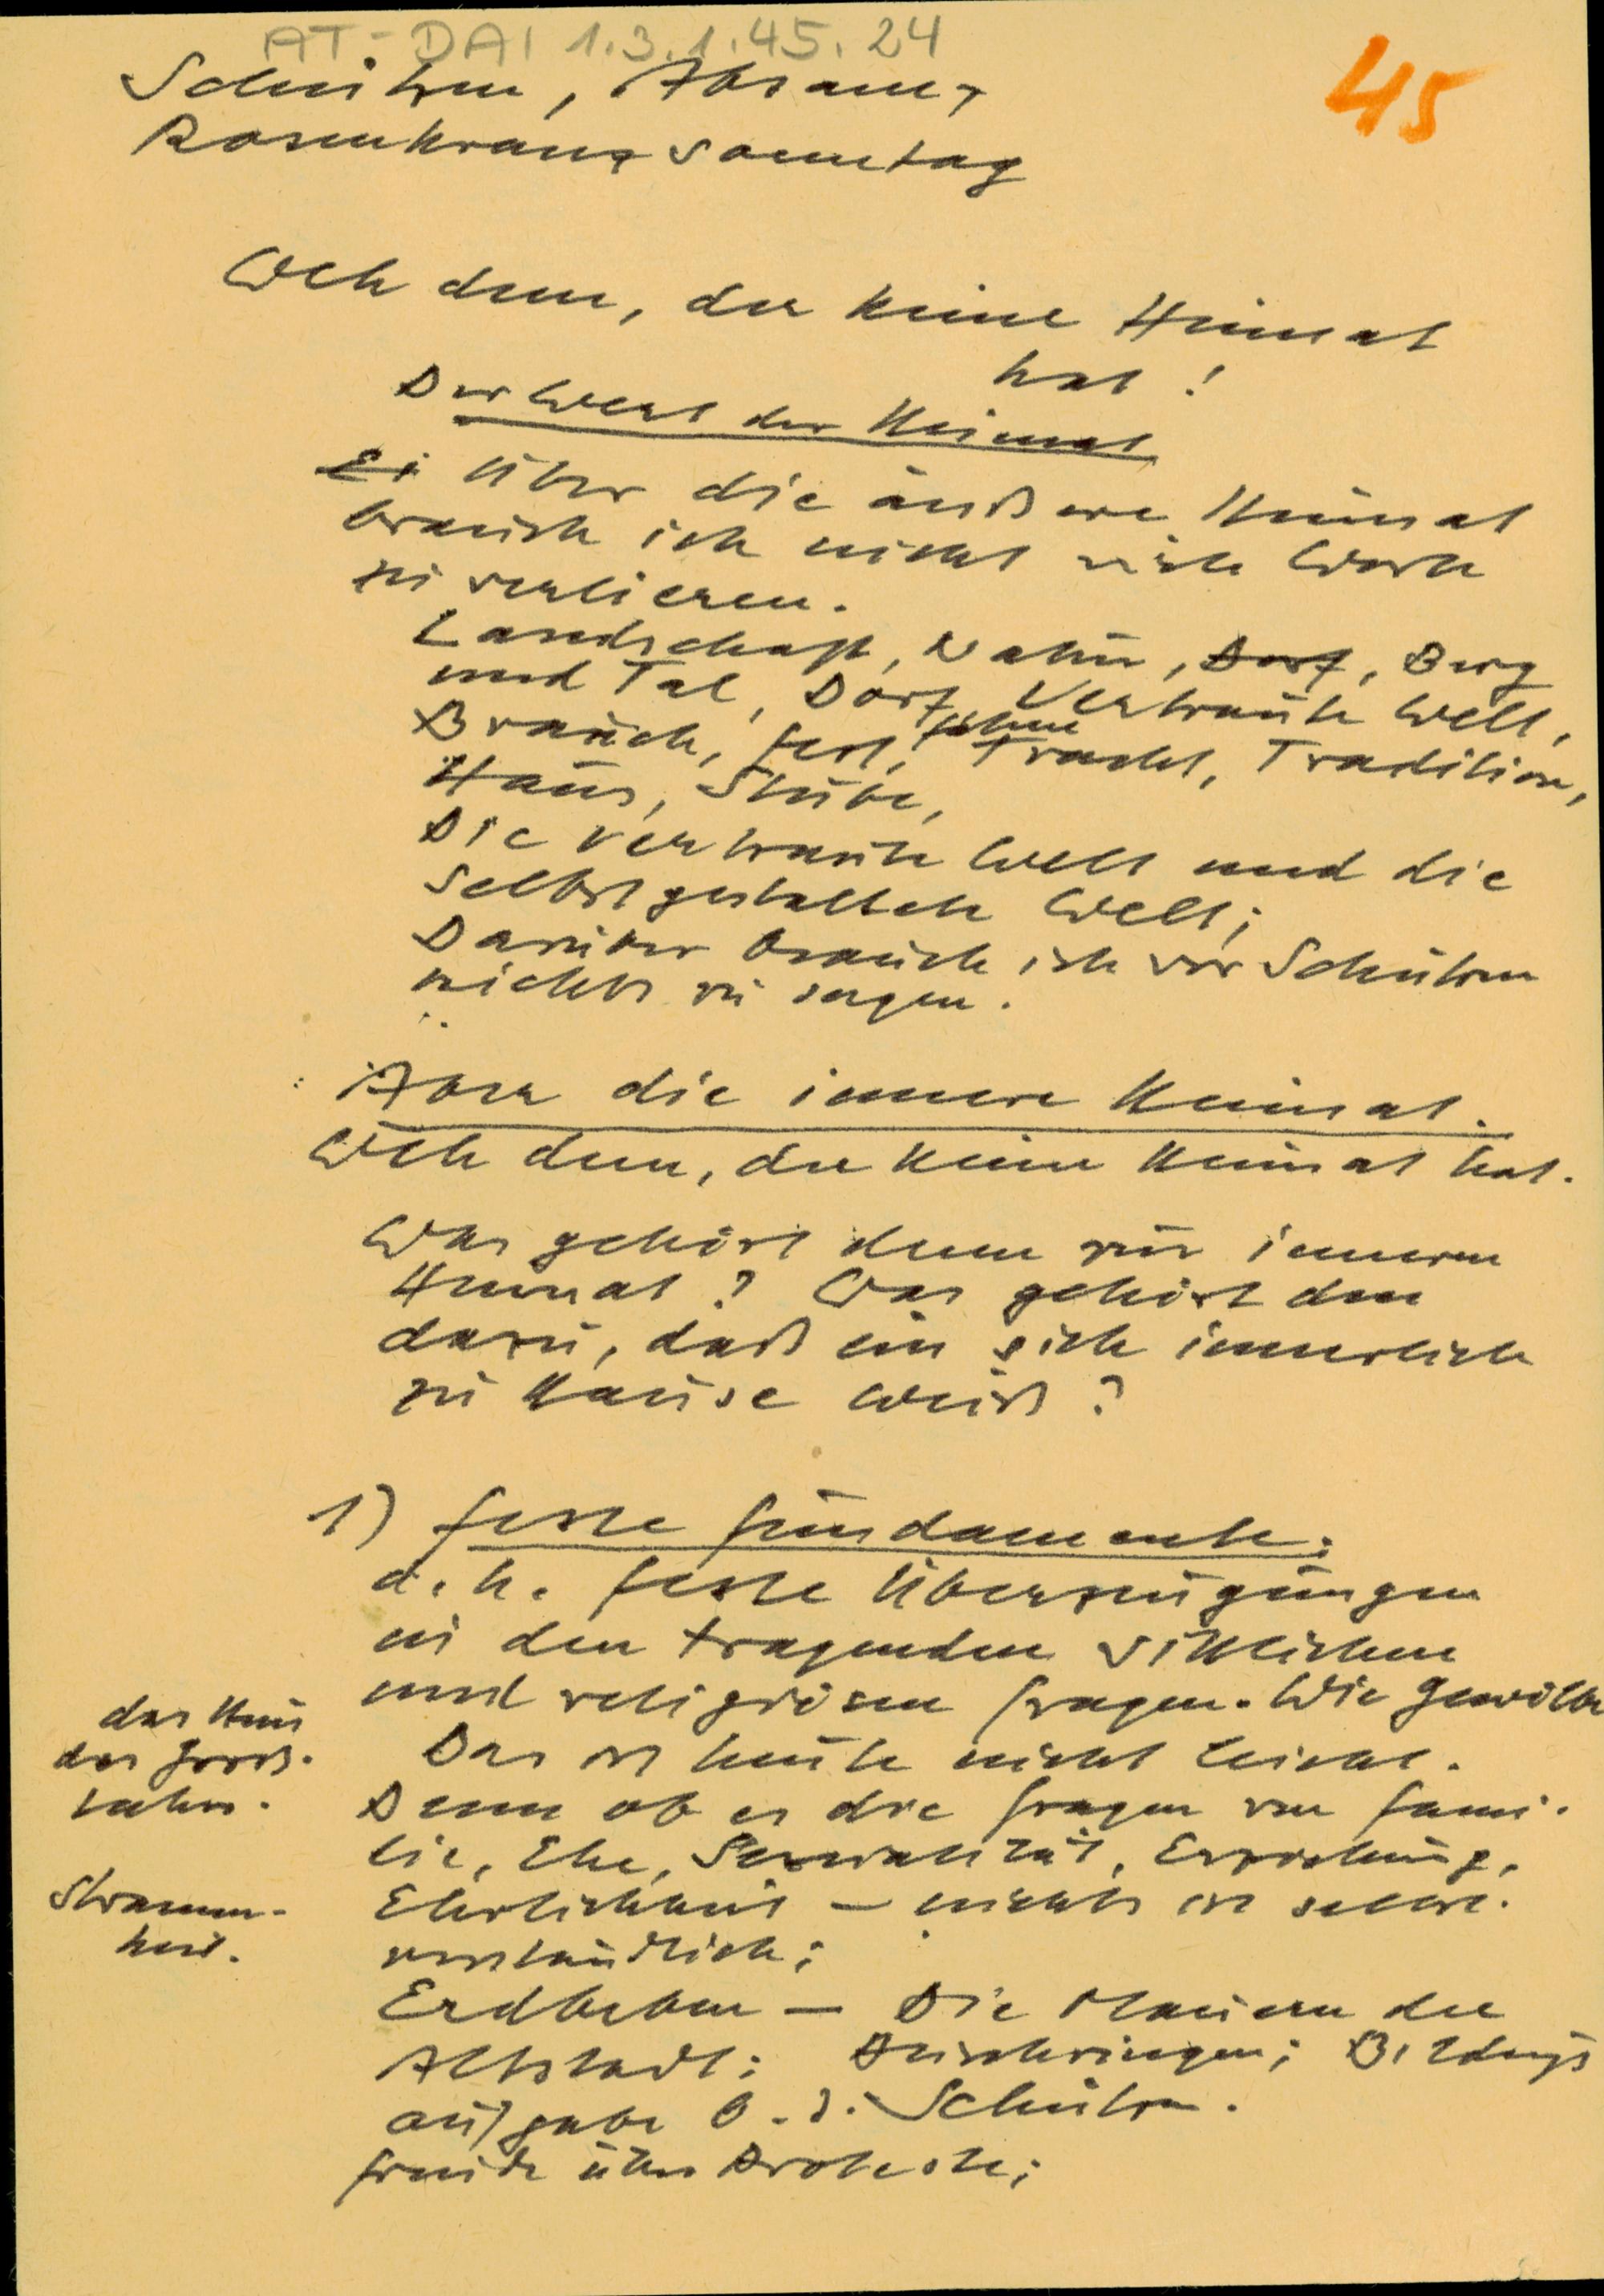 AT-DAI 1.3.1.45.24
45
Schützen, Absam,
Rosenkranzsonntag
Weh dem, der keine Heimat
hat!
Der Wert der Heimat
Ei Über die äußere Heimat
brauch ich nicht viele Worte
zu verlieren.
Landschaft, Natur, Dorf, Berg
und Tal, Dorf, Vertraute Welt,
Brauch, Fest, Fahne Tracht, Tradition,
Haus, Stube,
Die vertraute Welt und die
selbstgestaltete Welt;
Darüber brauch ich vor Schützen
nichts zu sagen.
Aber die innere Heimat.
Weh dem, der keine Heimat hat.
Was gehört denn zur inneren
Heimat? Was gehört denn
dazu, daß ein sich innerlich
zu Hause weiß?
1) feste Fundamente:
d. h. feste Überzeugungen
in den tragenden sittlichen
und religiösen Fragen. Wie Gewölbe
das Haus
des Groß-
vaters.
Das ist heute nicht leicht.
Denn ob es die Fragen von Fami-
lie, Ehe, Sexualität, Erziehung,
Stramm-
heit.
Ehrlichkeit – nichts ist selbst-
verständlich;
Erdbeben – Die Mauern der
Altstadt: Bildungs
aufgabe Schützen.
Freude über Proteste;